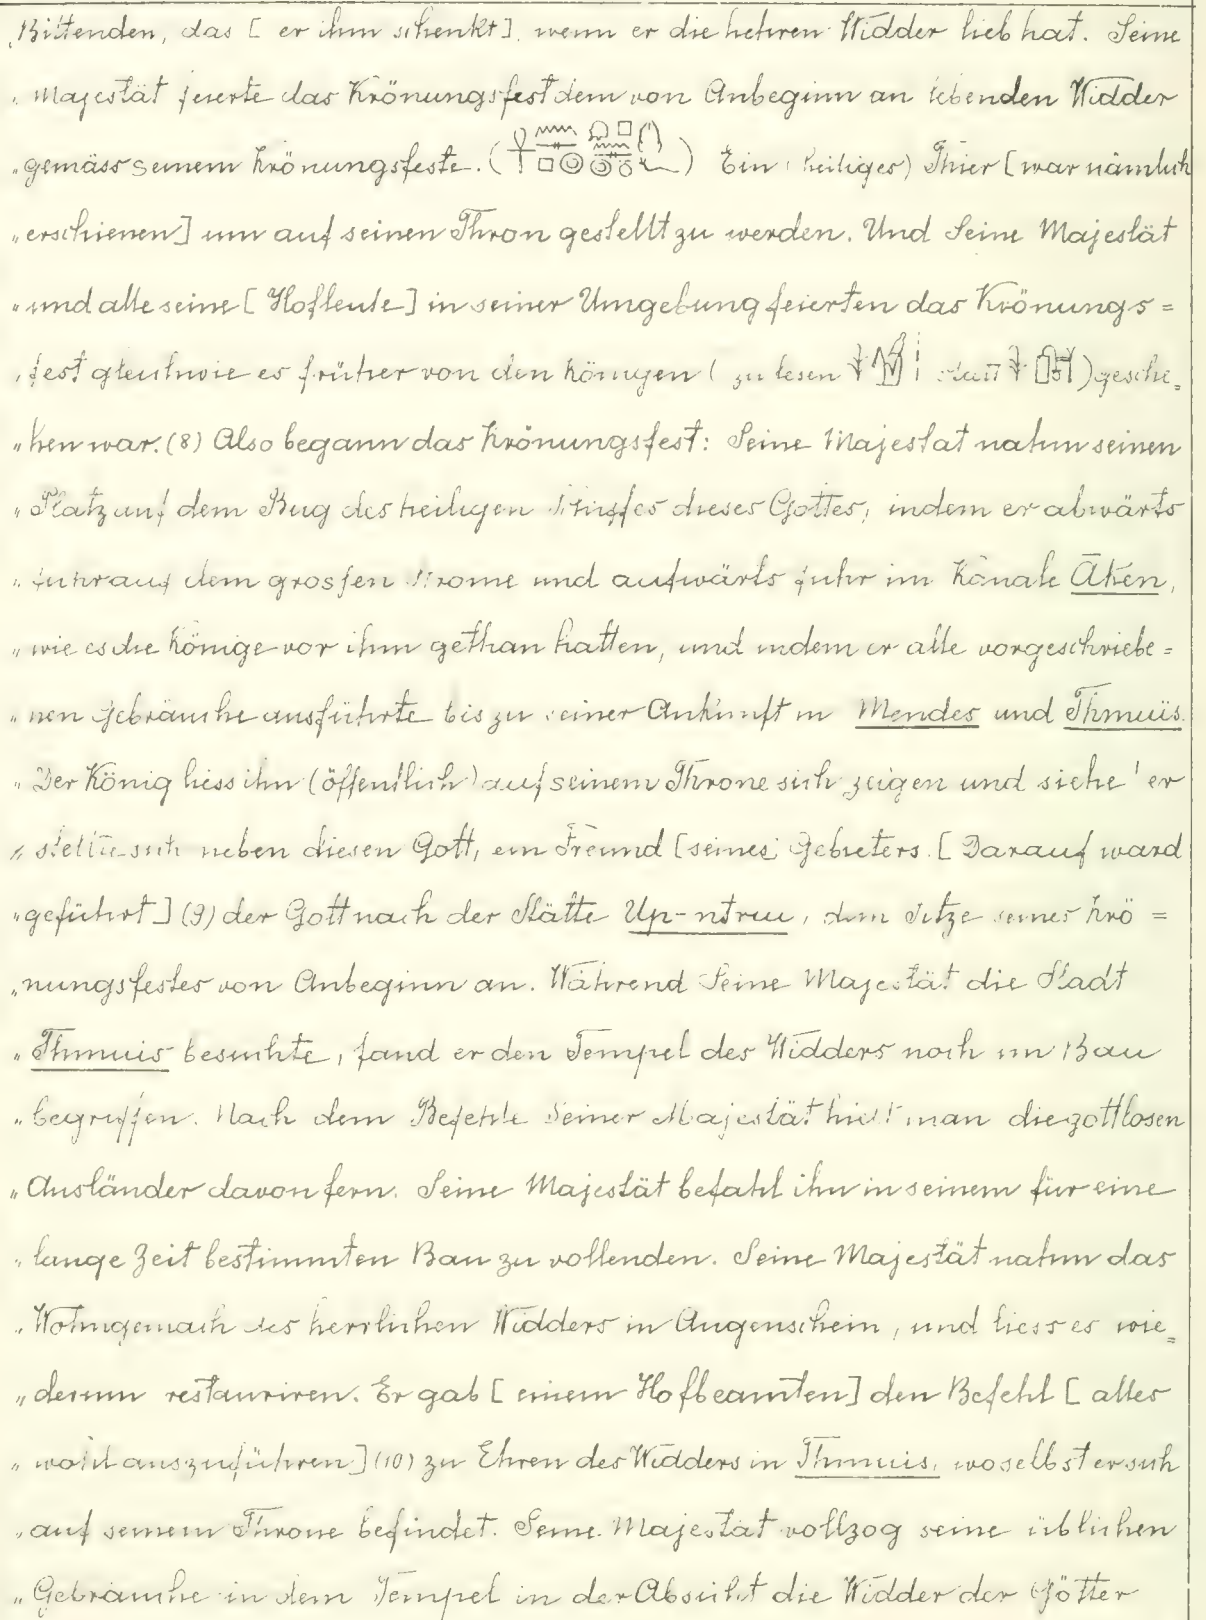 „Bittenden, das [ er ihm schenkt], wenn er die hehren Widder lieb hat. Seine
„Majestät feierte das Krönungsfest dem von Anbeginn an lebenden Widder
„gemäss seinem Krönungsfeste. ( ) Ein (heiliges) Thier [war nämlich
„erschienen] um auf seinen Thron gestellt zu werden. Und Seine Majestät
„und alle seine [ Hofleute ] in seiner Umgebung feierten das Krönungs=
„fest gleichwie es früher von den Königen ( zu lesen statt ) gesche=
„hen war. (8) Also begann das Krönungsfest: Seine Majestat nahm seinen
„Platz auf dem Bug des heiligen Schiffes dieses Gottes, indem er abwärts
„fuhr auf dem grossen Strome und aufwärts fuhr im Kanale Āken,
„wie es die Könige vor ihm gethan hatten, und indem er alle vorgeschriebe=
„nen Gebräuche ausführte bis zu seiner Ankunft in Mendes und Thmuis.
„Der König liess ihn (öffentlich) auf seinem Throne sich zeigen und siehe! er
„stellte sich neben diesen Gott, ein Freund [seines] Gebieters. [ Darauf ward
„geführt ] (9) der Gott nach der Stätte Up-ntruu, dem Sitze seines Krö=
„nungsfestes von Anbeginn an. Während Seine Majestät die Stadt
„Thmuis besuchte, fand er den Tempel des Widders noch im Bau
„begriffen. Nach dem Befehle Seiner Majestät hielt man die gottlosen
„Ausländer davon fern. Seine Majestät befahl ihn in seinem für eine
„lange Zeit bestimmten Bau zu vollenden. Seine Majestät nahm das
„Wohngemach des herrlichen Widders in Augenschein, und liess es wie=
„derum restauriren. Er gab [ einem Hofbeamten ] den Befehl [ alles
„wohl auszuführen ] (10) zu Ehren des Widders in Thmuis, woselbst er sich
„auf seinem Throne befindet. Seine Majestät vollzog seine üblichen
„Gebräuche in dem Tempel in der Absicht die Widder der Götter